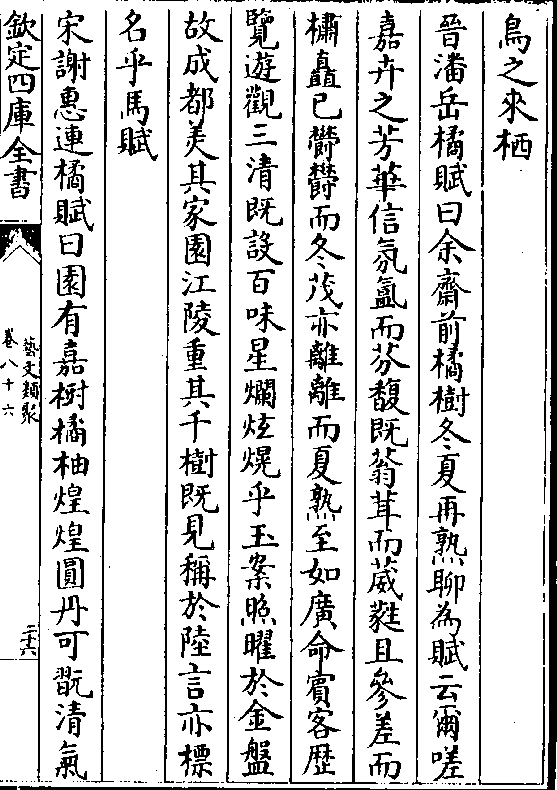 鳥之來栖
晉潘岳橘賦曰余齋前橘樹冬夏再熟聊為賦云爾嗟
嘉卉之芳華信氛氲而芬馥既蓊茸而葳蕤且參差而
橚矗已欝欝而冬茂亦離離而夏熟至如廣命賓客歴
覽遊觀三清既設百味星爛炫熀乎玉案照曜於金盤
故成都羙其家園江陵重其千樹既見稱於陸言亦標
名乎馬賦
宋謝惠連橘賦曰園有嘉樹橘柚煌煌圓丹可翫清氣
欽定四庫全書
藝文類聚
卷八十六
二十六